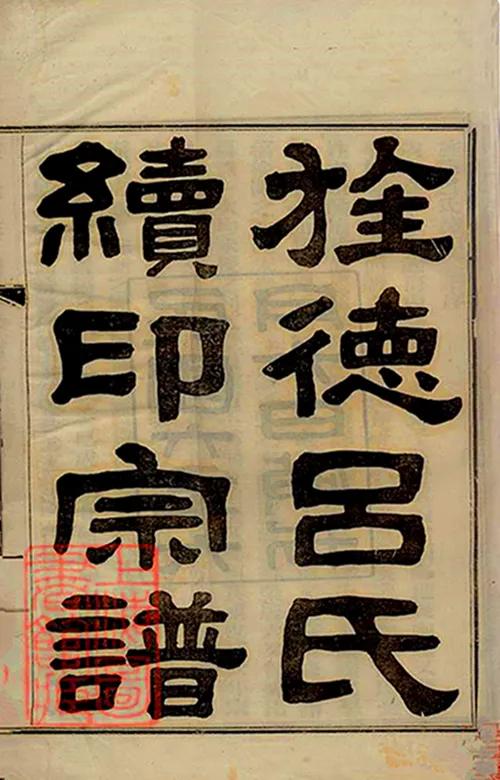 旌德呂氏
續印宗譜